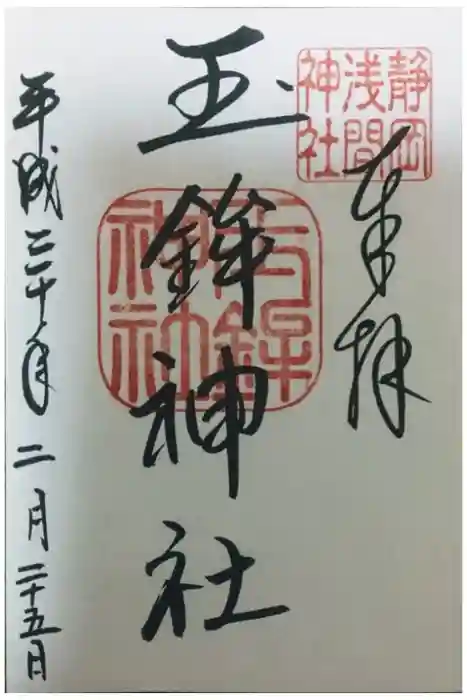 奉拝
静岡
浅間
神社
玉鉾神社
玉鉾
神社
平成三十年二月二十五日